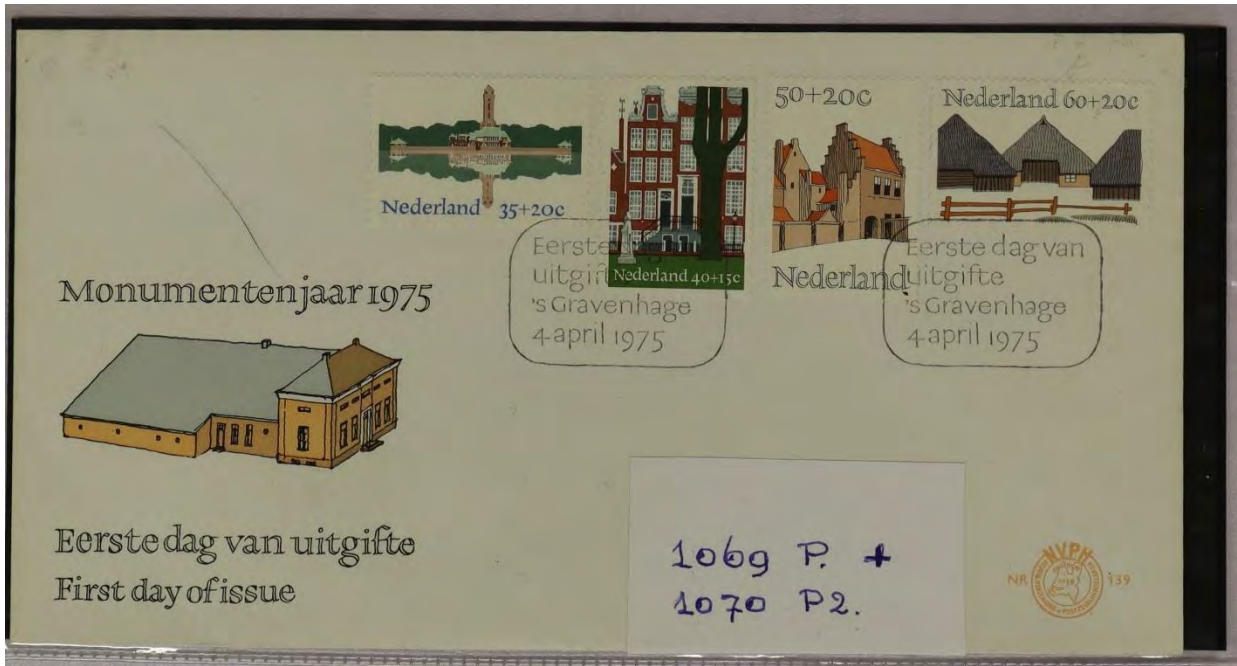 Nederland 35+20c
Nederland 40+15c
50+20c
Nederland
Nederland 60+20c
Eerste dag
uitgift
's Gravenhage
4 april 1975
Eerste dag van
uitgifte
's Gravenhage
4 april 1975
Monumentenjaar 1975
Eerste dag van uitgifte
First day of issue
1069 P. +
1070 P2.
NR
NVPH
139